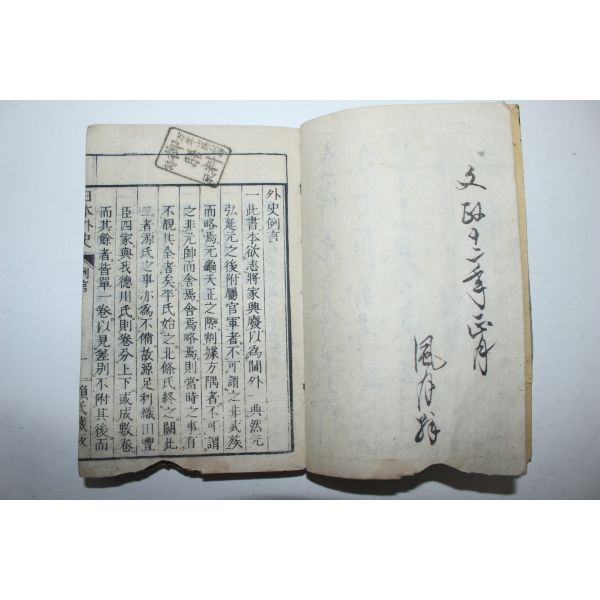 文政十二年正月
風月
外史例言
一此書本欲志將家興廢以為閫外一典然元
弘延元之後附屬官軍者不可謂之非武族
而略焉元龜天正之際割據方隅者不可謂
之非元帥而舍焉舍焉略焉則當時之事自
不覩其全者矣平氏始之北條氏終之關此
二者源氏之事亦為不備故源足利織田豐
臣四家與我德川氏則卷分上下或成數卷
而其餘者皆單一卷以見差別不附其後而
日本外史 例言 一 賴氏藏板